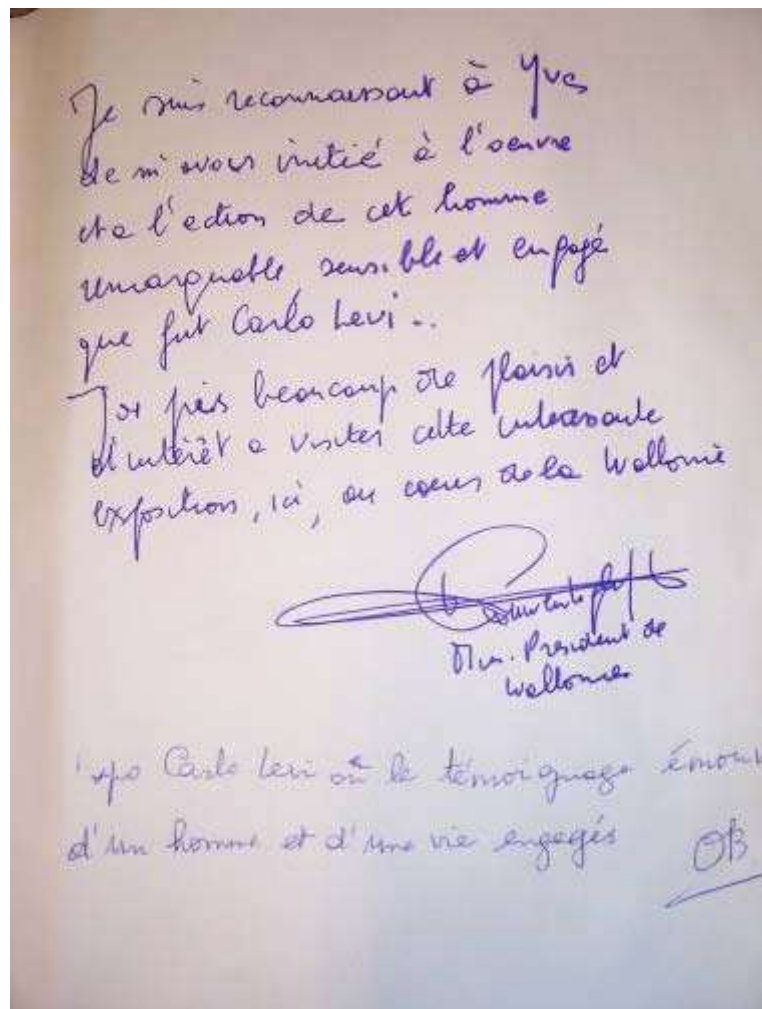 Je suis reconnaissant à Yves
de m'avoir initié à l'oeuvre
et a l'action de cet homme
remarquable, sensible et engagé
que fut Carlo Levi ..
J'ai pris beaucoup de plaisir et
d'intérêt a visiter cette interessante
exposition, ici, au coeur de la Wallonie
Min. President de
Wallonie
expo Carlo Levi où le témoignage
d'un homme et d'une vie engagés
OB